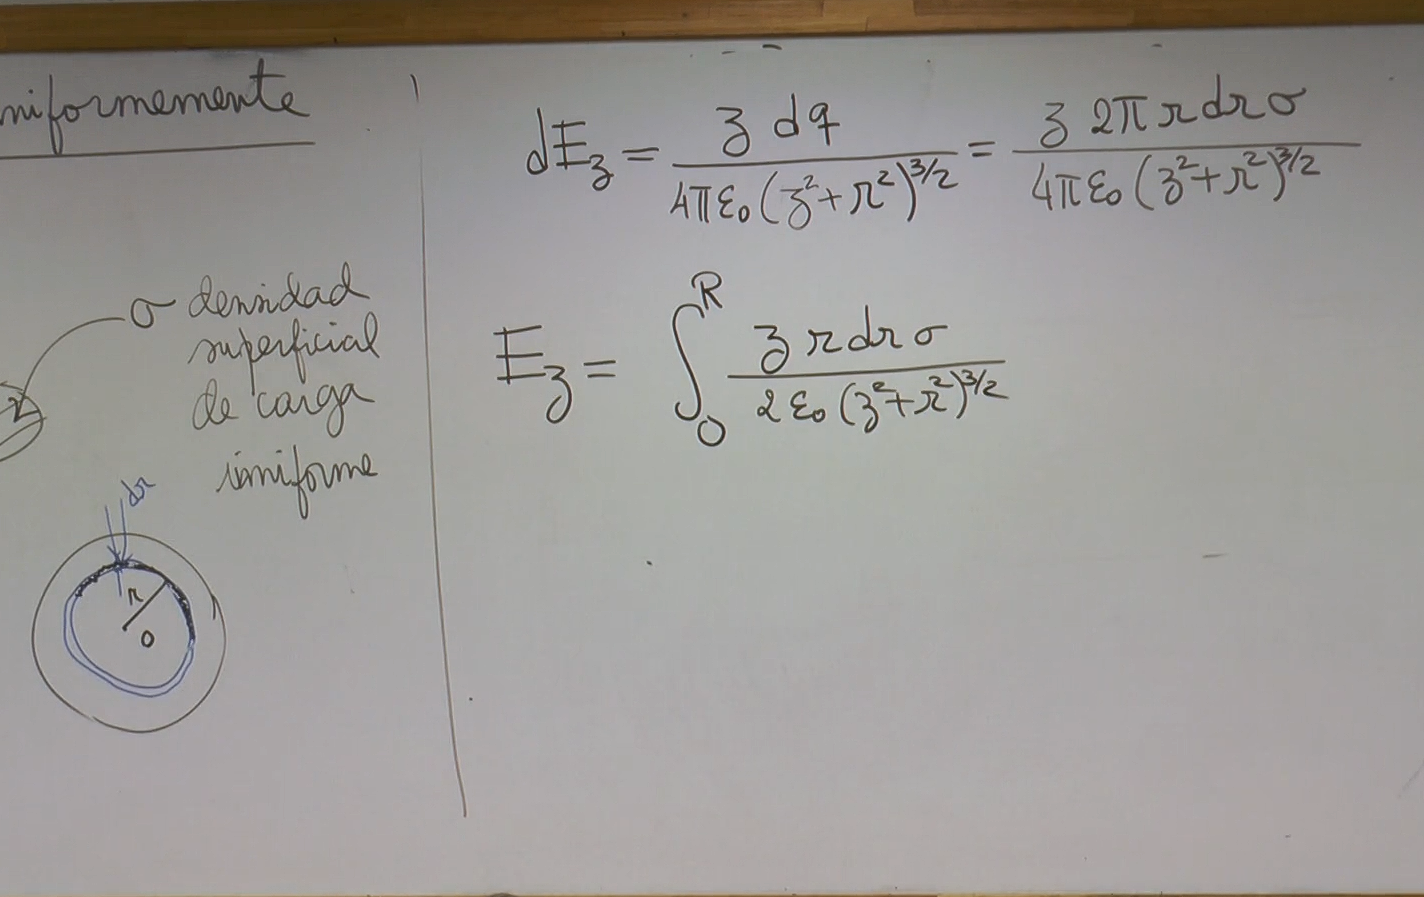 niformemente
σ densidad
superficial
de carga
uniforme
dr
r
O
dE_z = z dq / 4πε₀(z²+r²)^3/2 = z 2π r dr σ / 4πε₀(z²+r²)^3/2
E_z = ∫₀^R z r dr σ / 2ε₀(z²+r²)^3/2